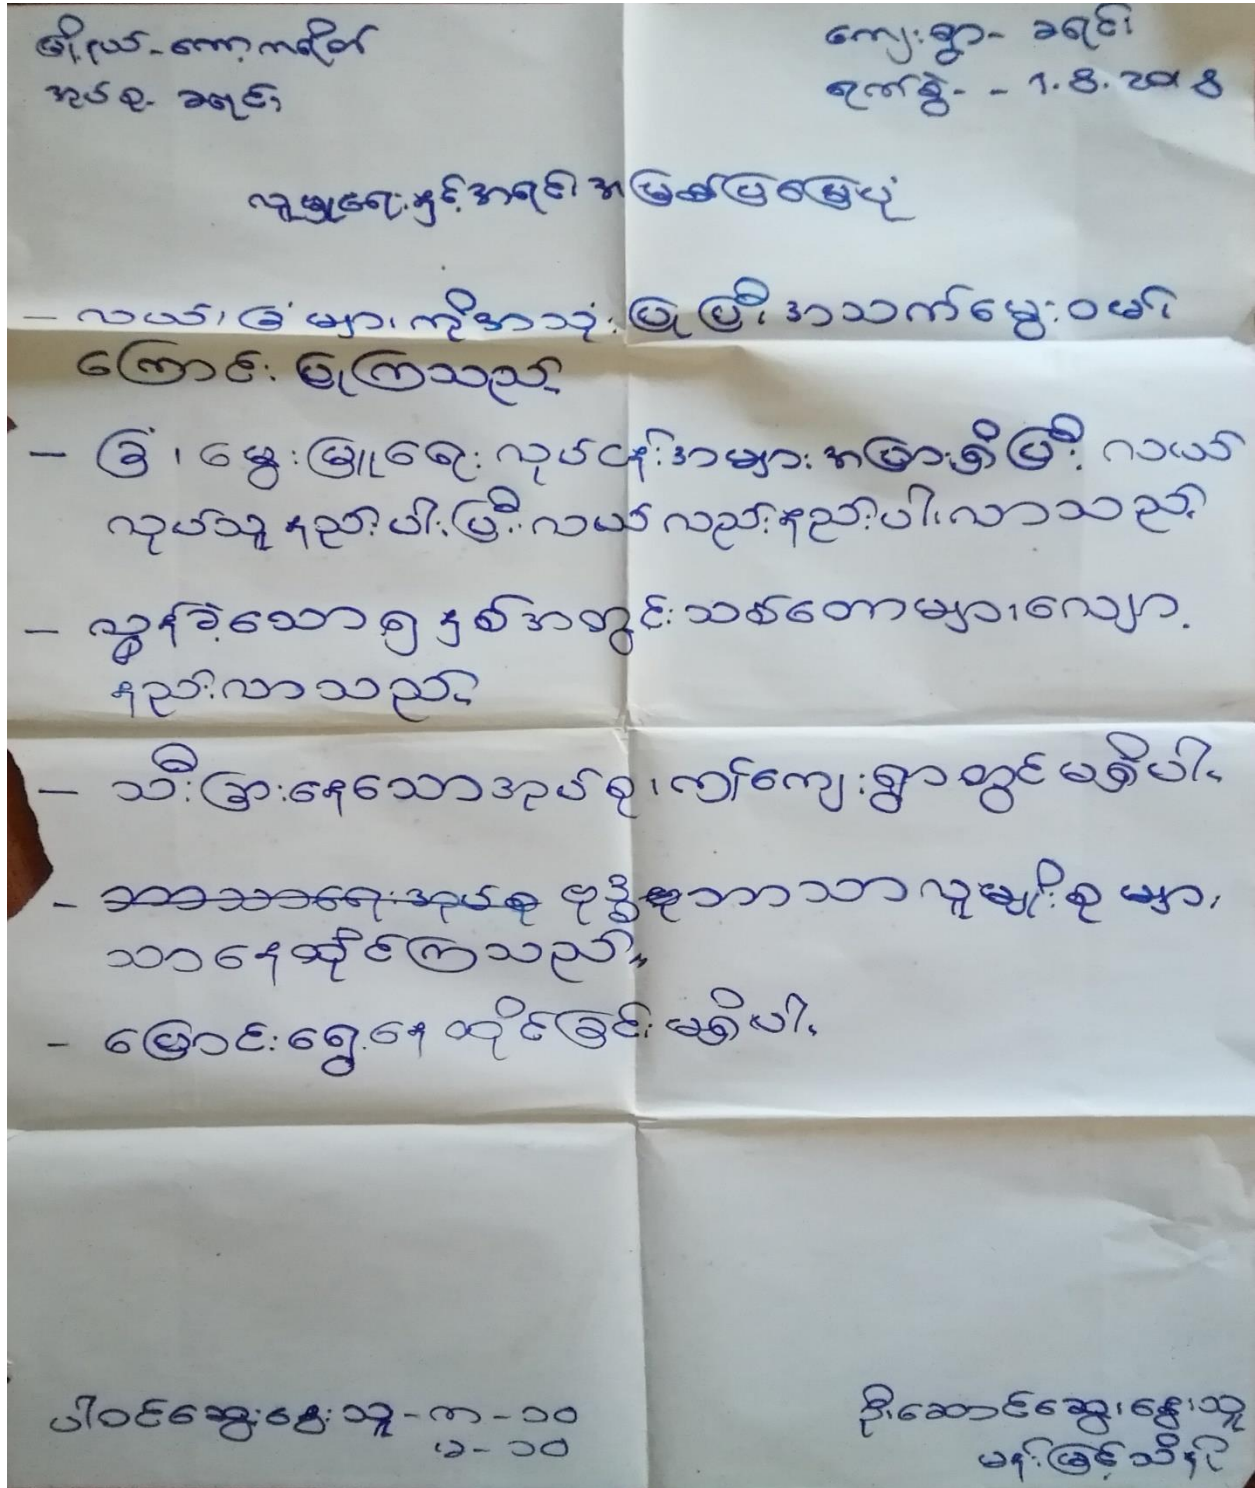 မြို့နယ်-ကော့ကရိတ်
ကျေးရွာ- ခရင်း
အုပ်စု- ခရင်း
ရက်စွဲ- - 1.8.2018
လူမှုရေးနှင့်အရင်းအမြစ်ပြမြေပုံ
- လယ်၊ ခြံများကိုအသုံးပြုပြီး အသက်မွေးဝမ်း
ကြောင်းပြုကြသည်။
- ခြံ၊ မွေးမြူရေးလုပ်ငန်းအများအပြားရှိပြီး လယ်
လုပ်သူနည်းပါးပြီး လယ်လည်းနည်းပါးလာသည်။
- လွန်ခဲ့သော ၅ နှစ်အတွင်း သစ်တောများလျော့
နည်းလာသည်။
- သီးခြားနေသောအုပ်စု၊ ဤကျေးရွာတွင်မရှိပါ။
- ဘာသာရေးအုပ်စု ဗုဒ္ဓဘာသာလူမျိုးစုများ
သာနေထိုင်ကြသည်။
- ပြောင်းရွှေ့နေထိုင်ခြင်းမရှိပါ။
ပါဝင်ဆွေးနွေးသူ - ကျား - ၁၀
မ - ၁၀
ဦးဆောင်ဆွေးနွေးသူ
မန်းမြင့်သိန်း